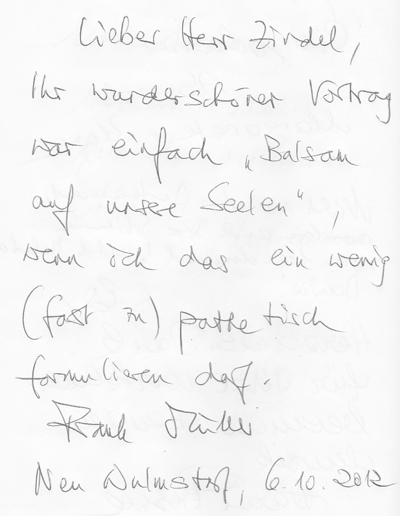 Lieber Herr Zindel,
Ihr wunderschöner Vortrag
war einfach „Balsam
auf unsere Seelen“,
wenn ich das ein wenig
(fast zu) pathetisch
formulieren darf.
Frank Müller
Neu Wulmstorf, 6.10.2012